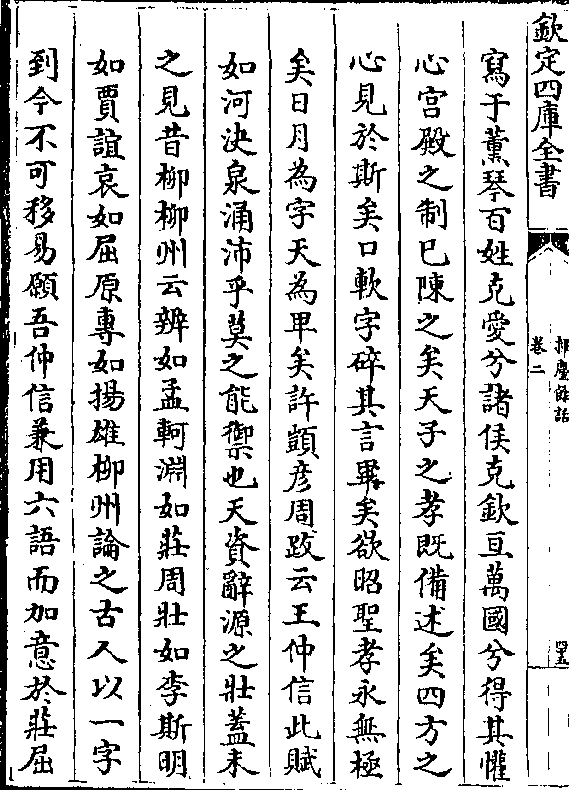 欽定四庫全書
揮麈餘話
卷二
四五
寫于薰琴百姓克愛兮諸侯克欽亘萬國兮得其懽
心宫殿之制已陳之矣天子之孝既備述矣四方之
心見於斯矣口軟字碎其言畢矣欲昭聖孝永無極
矣日月為字天為甲矣許顗彦周跋云王仲信此賦
如河決泉涌沛乎莫之能禦也天資辭源之壯蓋未
之見昔柳柳州云辨如孟軻淵如莊周壯如李斯明
如賈誼哀如屈原專如揚雄柳州論之古人以一字
到今不可移易願吾仲信兼用六語而加意於莊屈